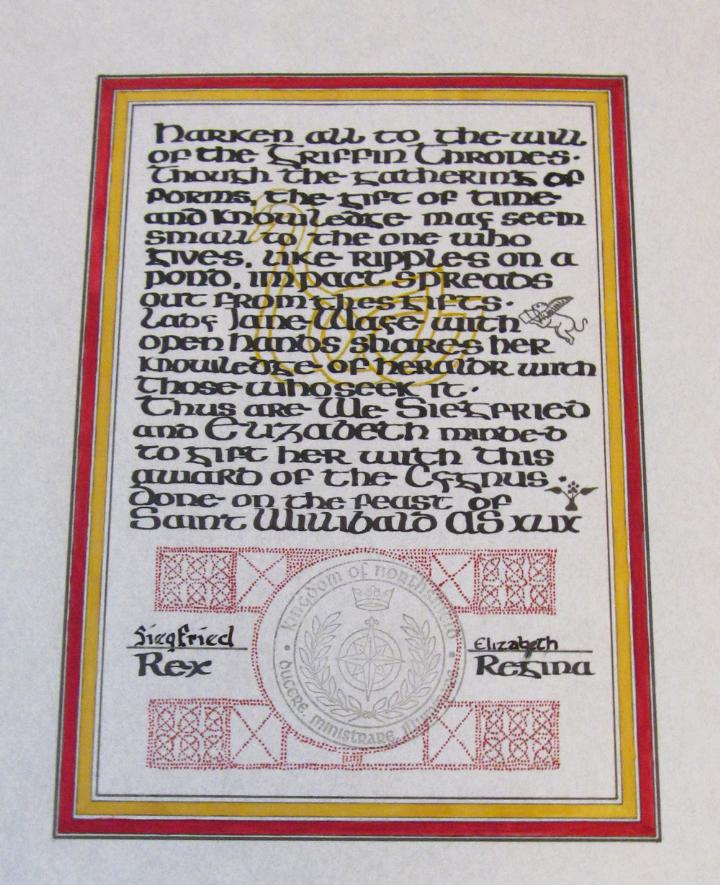 Harken all to the will
of the Griffin Thrones.
Though the gathering of
Forms, the gift of time
and knowledge may seem
small to the one who
gives, like ripples on a
pond, impact spreads
out from thes gifts.
Lady Jane Wafe with
open hands shares her
knowledge of heraldr with
those who seek it.
Thus are We Siegfried
and Elizabeth minded
to gift her with this
award of the Cygnus.
Done on the feast of
Saint Willibald AS XLIX
Kingdom of Northshield
Ducere Ministrare
Siegfried
Rex
Elizabeth
Regina